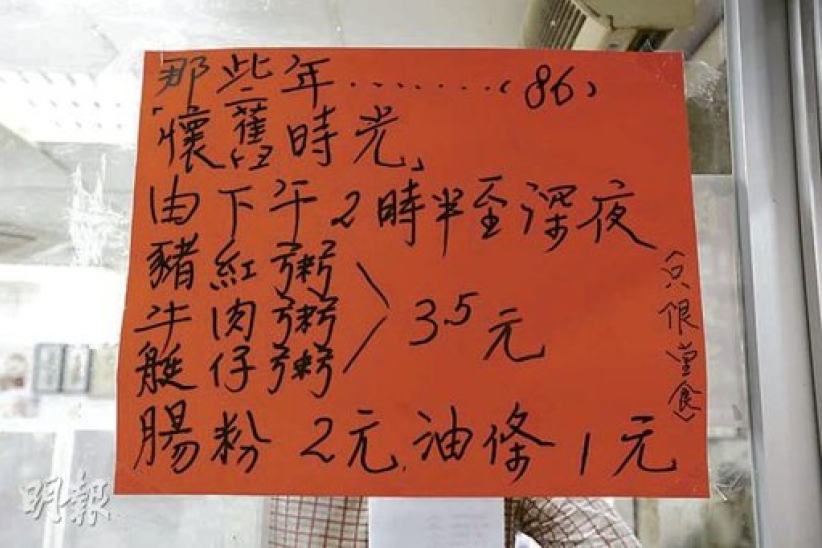 那些年.......(86)
「懷舊時光」
由下午2時半至深夜
豬紅粥
牛肉粥
艇仔粥
3.5元
(只限堂食)
腸粉 2元,油條 1元
明報